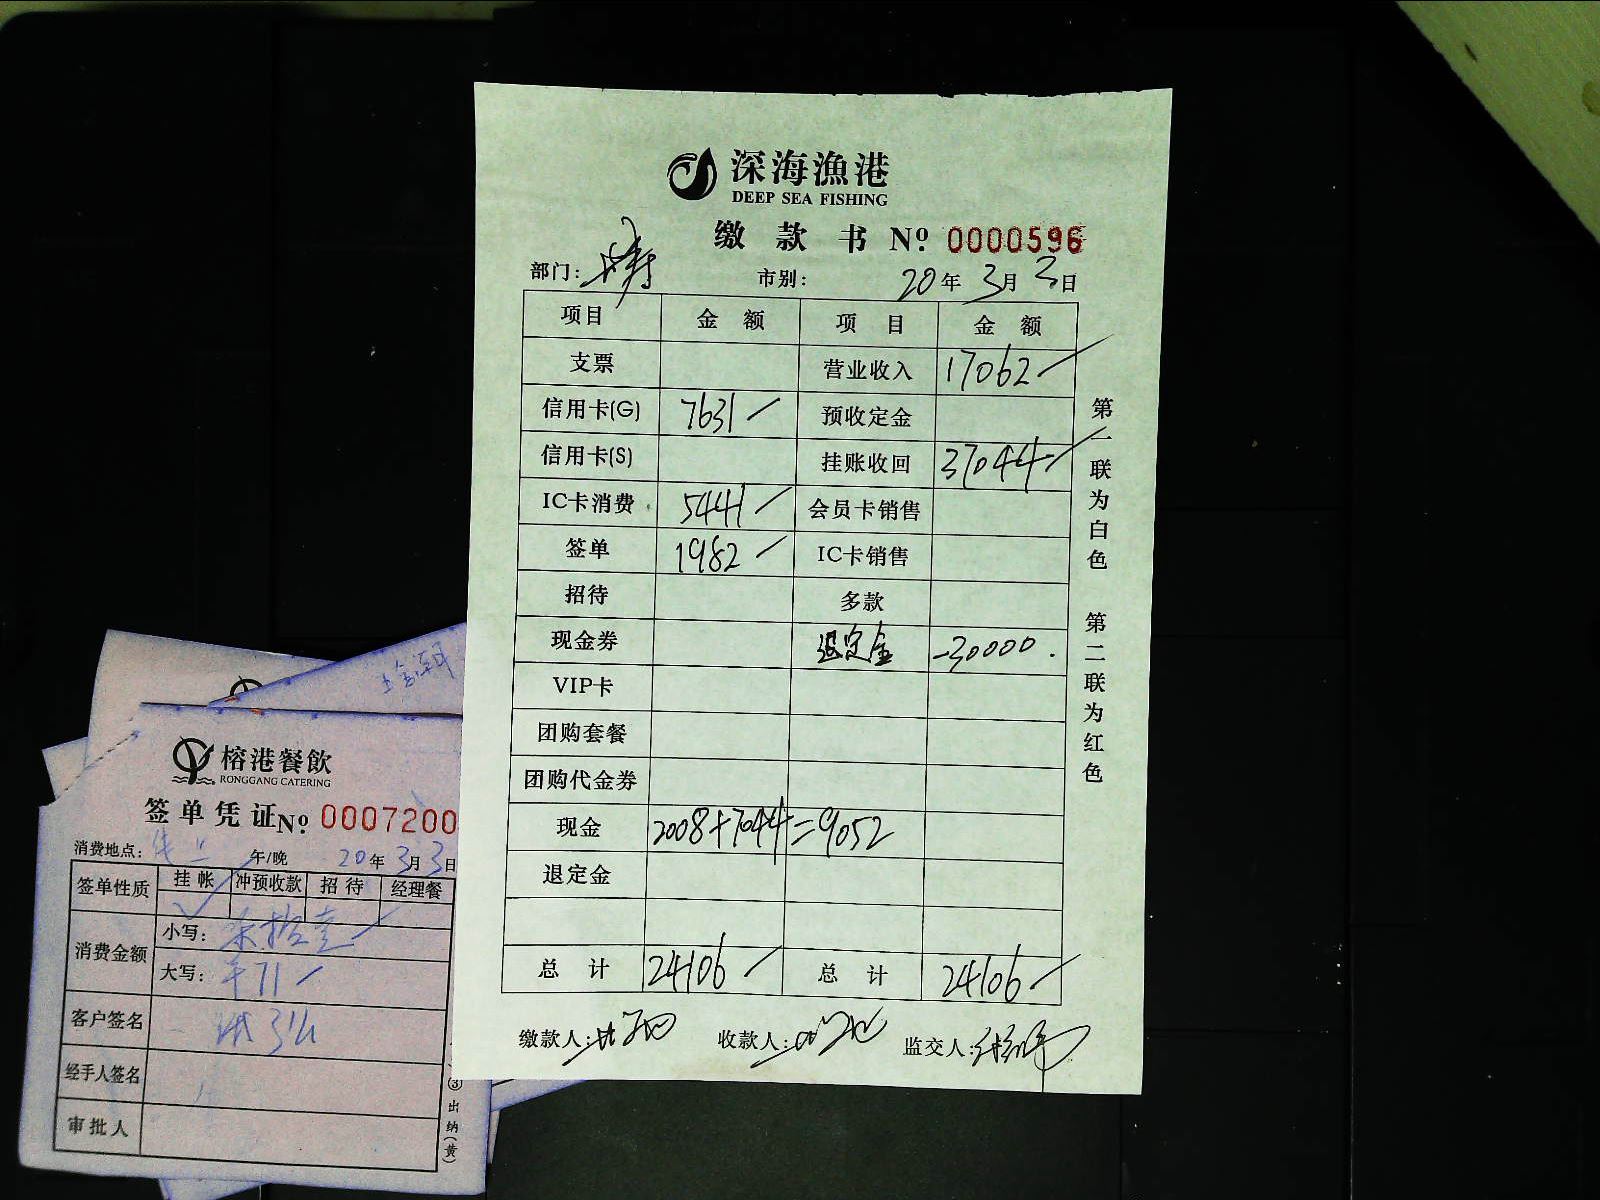 深海漁港
DEEP SEA FISHING
缴款书 Nº: 0000596
部门: 市别: 20年3月3日
项目 金额 项目 金额
支票 营业收入 17062
信用卡(G) 7631 预收定金
信用卡(S) 挂账收回 37044
IC卡消费 5441 会员卡销售
签单 1982 IC卡销售
招待 多款
现金券 退定金 -30000.
VIP卡
团购套餐
团购代金券
现金 2008+7044=9052
退定金
总计 24106 总计 24106
缴款人: 收款人: 监交人:
第一联为白色 第二联为红色
榕港餐飲
RONGGANG CATERING
签单凭证Nº: 0007200
消费地点: 午/晚 20年3月3日
签单性质 挂帐 冲预收款 招待 经理餐
消费金额 小写: 柒拾壹
大写: 771
客户签名
经手人签名
审批人
③出纳(黄)